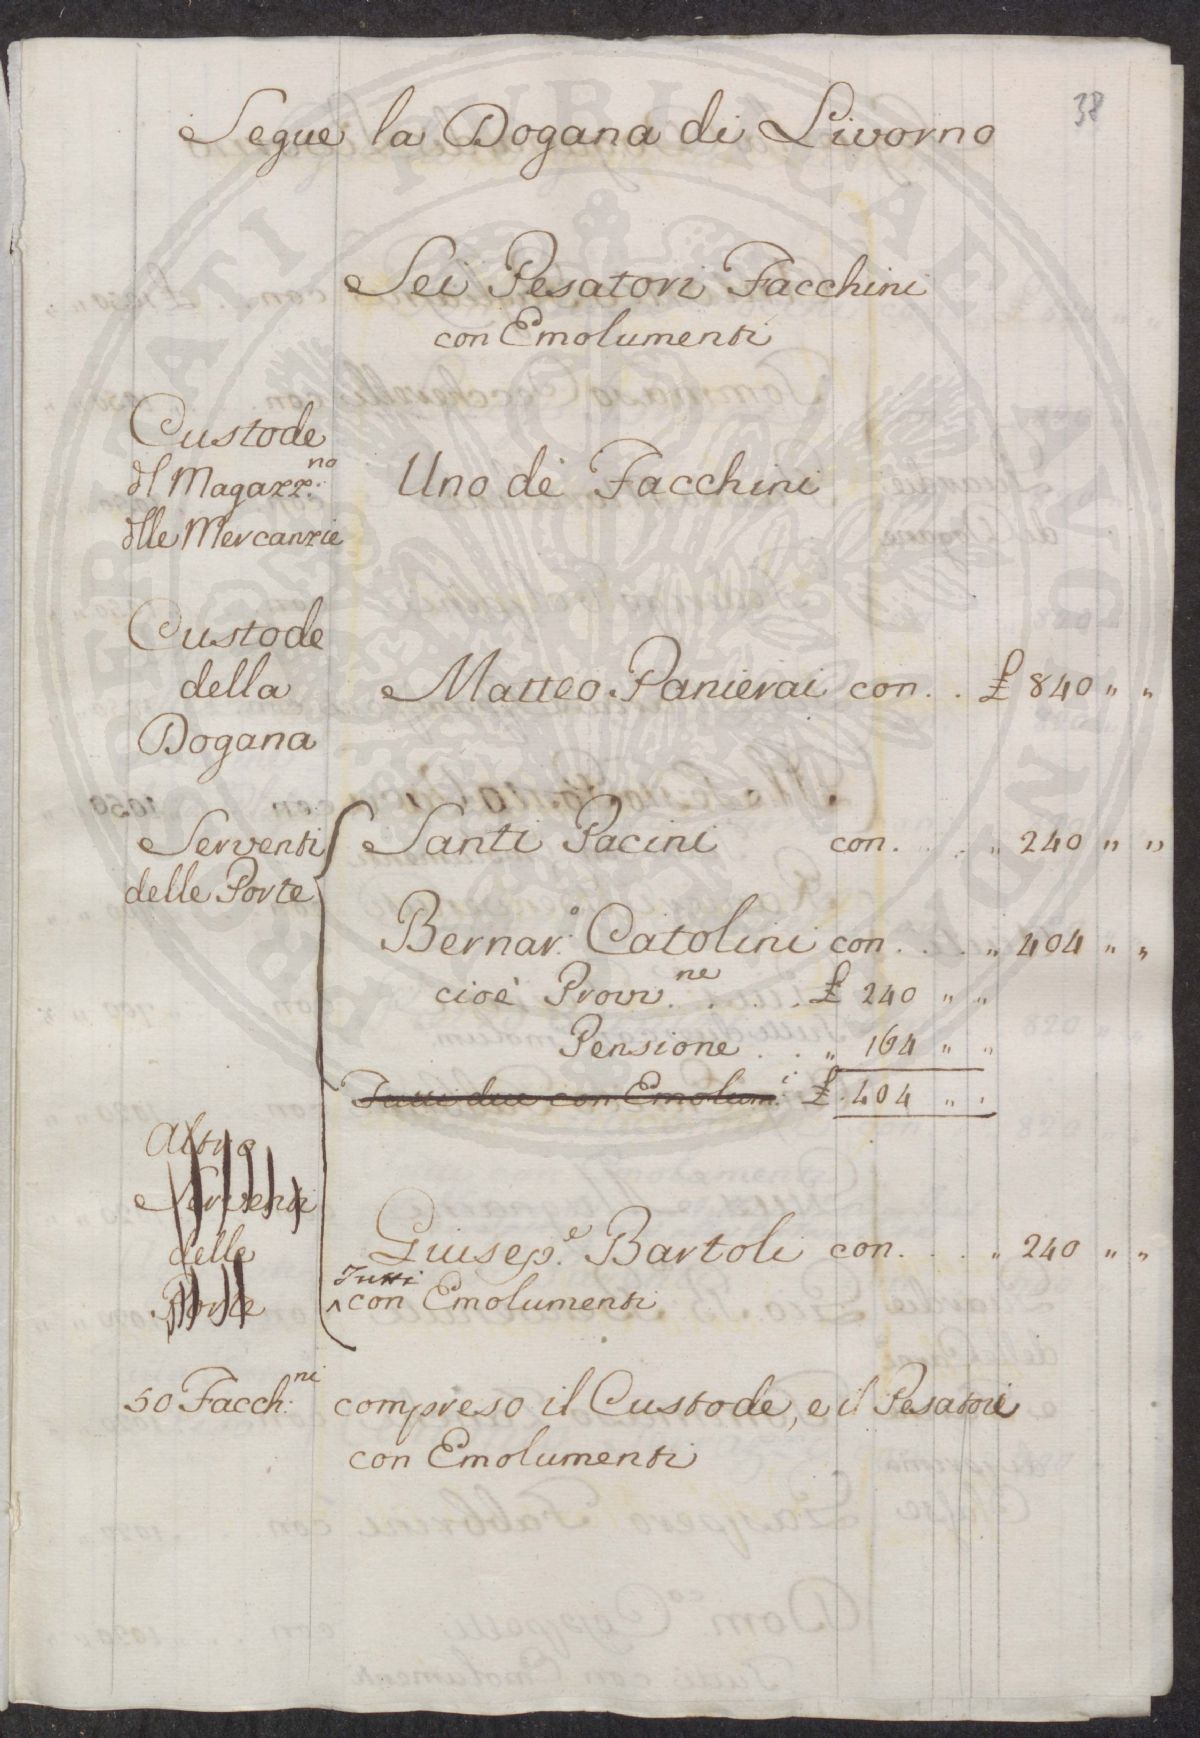 38
Segue la Dogana di Livorno
Sei Pesatori Facchini
con Emolumenti
Custode
dl Magazz.no
dlle Mercanzie
Uno de Facchini
Custode
della
Dogana
Matteo Panierai con . . £ 840 " "
Serventi
delle Porte
Santi Pacini con . . . . " 240 " "
Bernar.o Catolini con . . . . " 404 " "
cioè Provv.ne . . . . £ 240 " "
Pensione . . " 164 " "
Tutti due con Emolum.i £ 404 " "
Altro
Serventi
delle
Porte
Giusep.e Bartoli con . . . . " 240 " "
Tutti
con Emolumenti
50 Facch.ni compreso il Custode, e il Pesatore
con Emolumenti